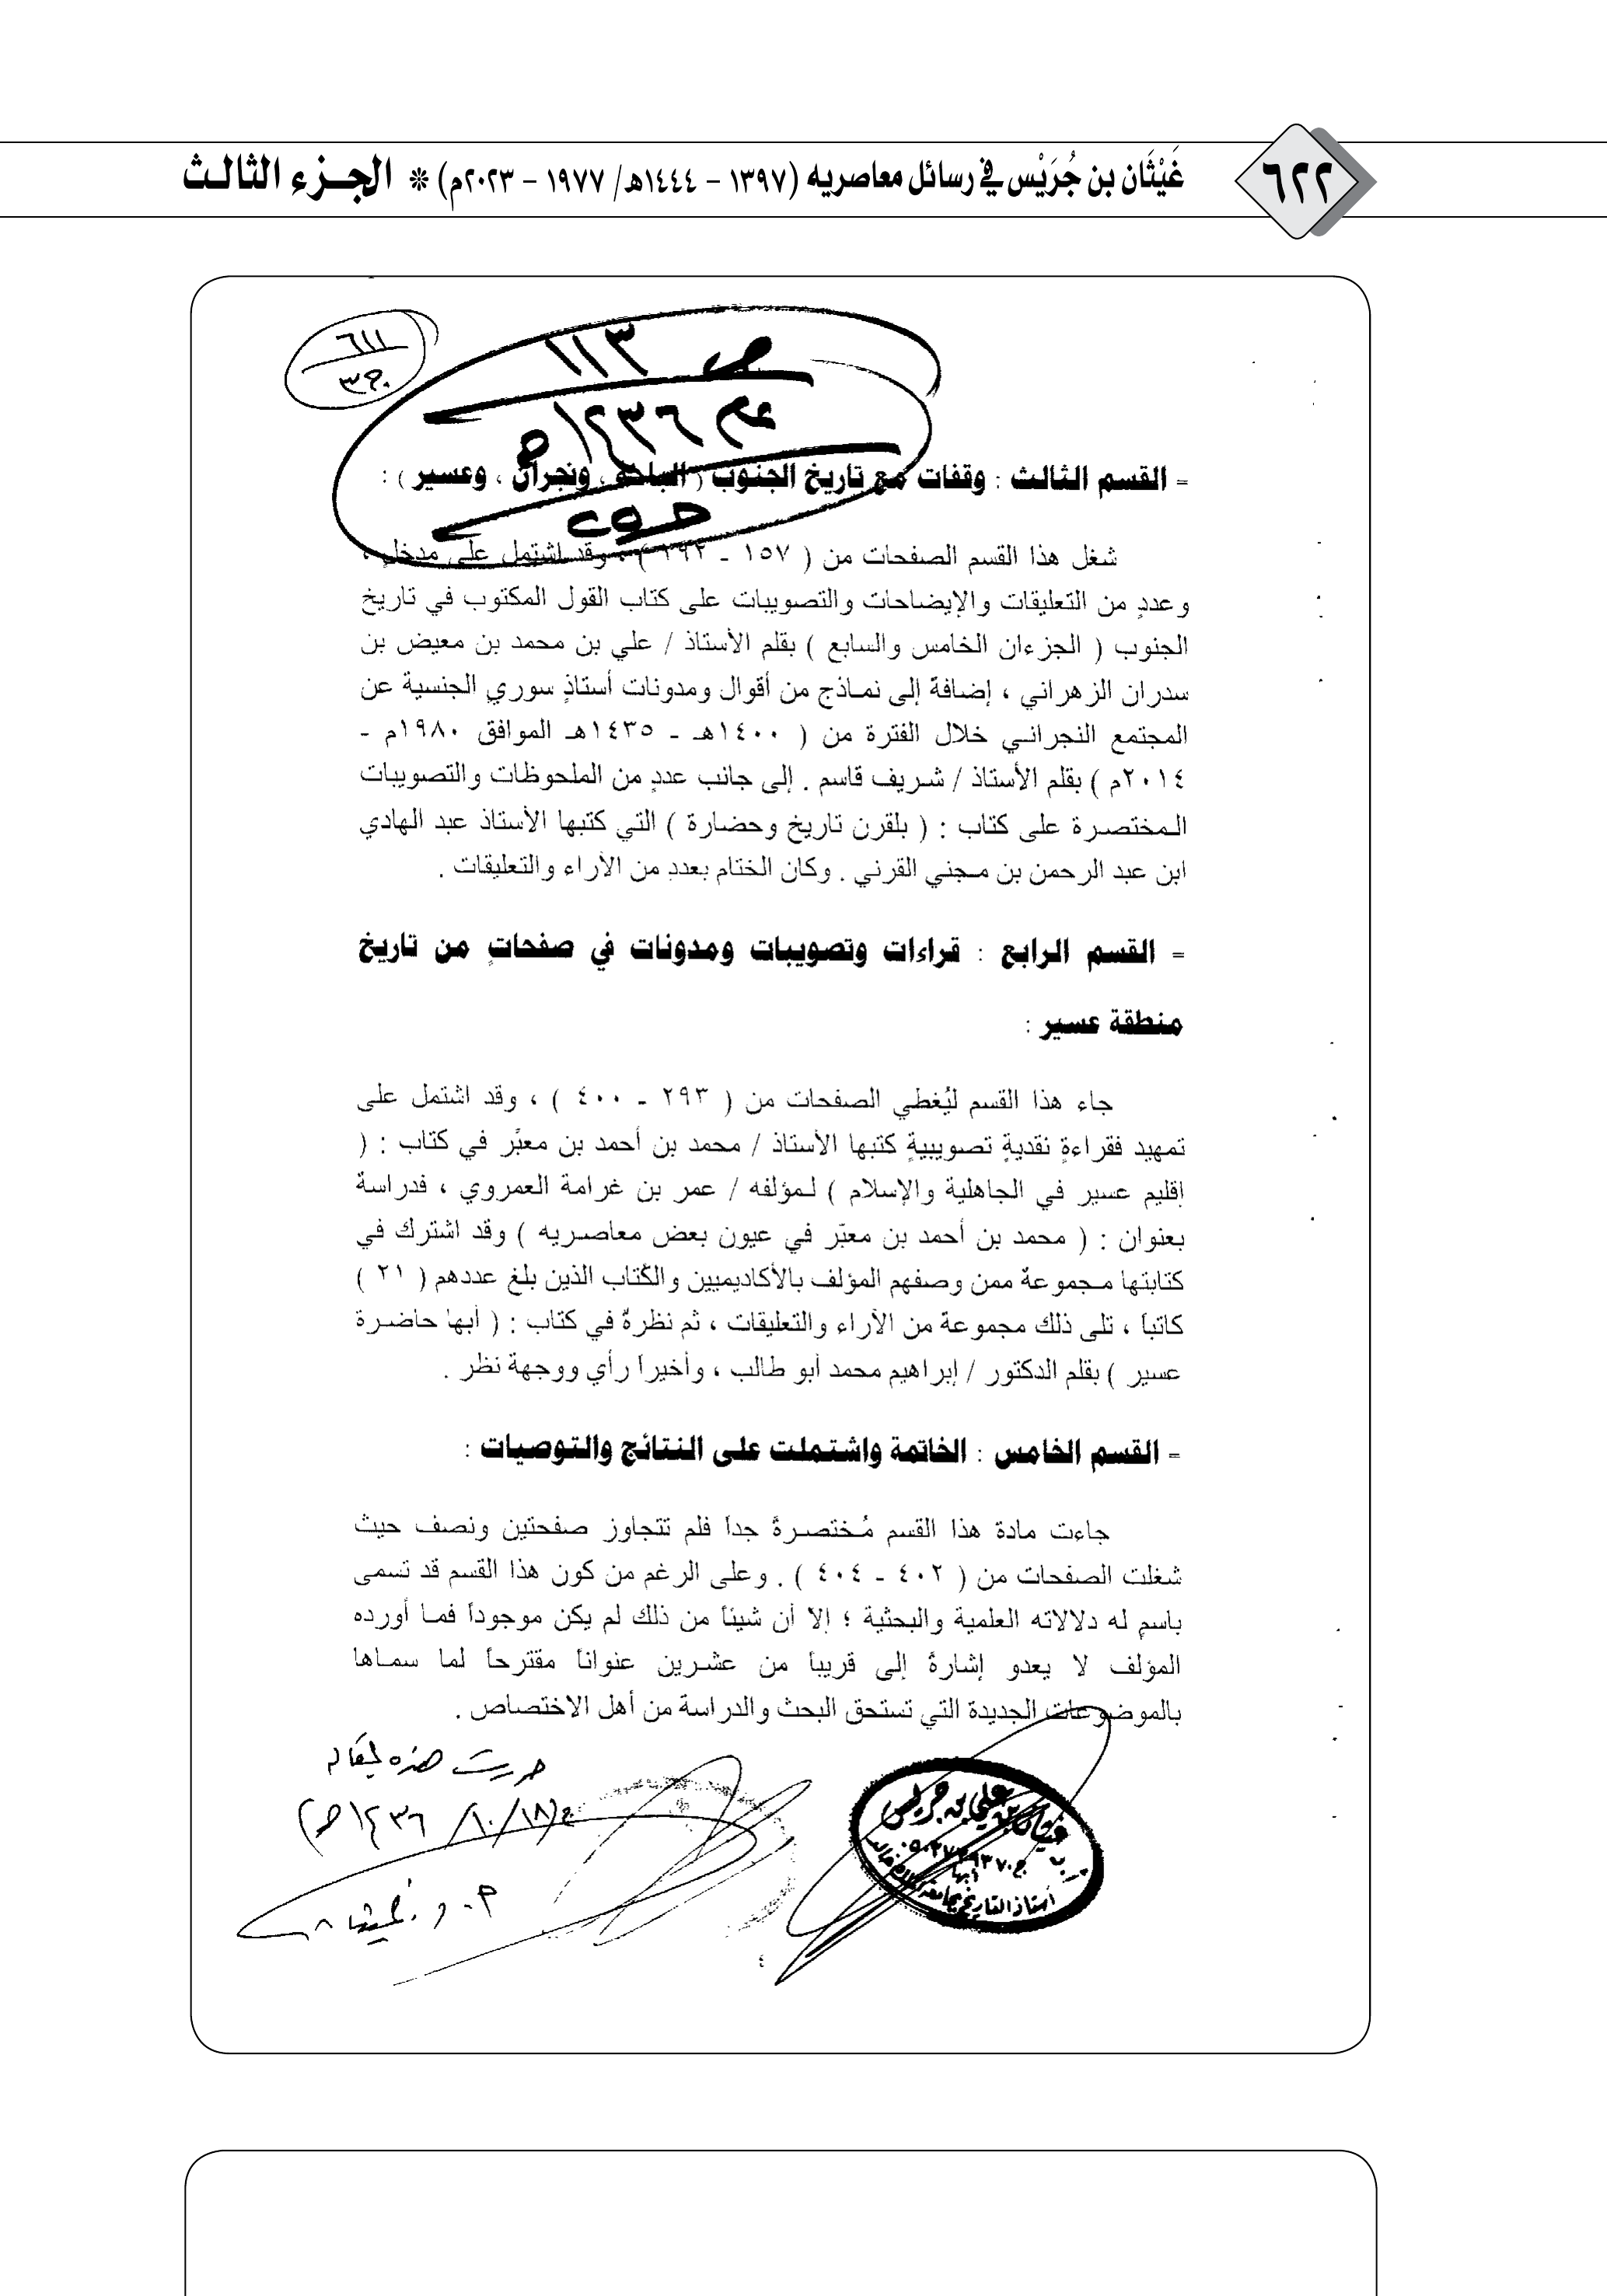 ٦٢٢
غَيْثَان بن جُرَيْس في رسائل معاصريه (١٣٩٧ - ١٤٤٤هـ/ ١٩٧٧ - ٢٠٢٣م) * الجـزء الثالـث
٦١١
ج٣
ص ١١٣
عام ١٤٣٦هـ
= القسم الثالث : وقفات مع تاريخ الجنوب ( الباحة ، ونجران ، وعسير ) :
شغل هذا القسم الصفحات من ( ١٥٧ - ٢٩٢ ) ، وقد اشتمل على مدخلٍ ،
وعددٍ من التعليقات والإيضاحات والتصويبات على كتاب القول المكتوب في تاريخ
الجنوب ( الجزءان الخامس والسابع ) بقلم الأستاذ / علي بن محمد بن معيض بن
سدران الزهراني ، إضافةً إلى نماذج من أقوال ومدونات أستاذٍ سوري الجنسية عن
المجتمع النجراني خلال الفترة من ( ١٤٠٠هـ - ١٤٣٥هـ الموافق ١٩٨٠م -
٢٠١٤م ) بقلم الأستاذ / شريف قاسم . إلى جانب عددٍ من الملحوظات والتصويبات
المختصرة على كتاب : ( بلقرن تاريخ وحضارة ) التي كتبها الأستاذ عبد الهادي
ابن عبد الرحمن بن مجني القرني . وكان الختام بعددٍ من الآراء والتعليقات .
= القسم الرابع : قراءات وتصويبات ومدونات في صفحاتٍ من تاريخ
منطقة عسير :
جاء هذا القسم ليُغطي الصفحات من ( ٢٩٣ - ٤٠٠ ) ، وقد اشتمل على
تمهيد فقراءةٍ نقديةٍ تصويبيةٍ كتبها الأستاذ / محمد بن أحمد بن معبَّر في كتاب : (
إقليم عسير في الجاهلية والإسلام ) لمؤلفه / عمر بن غرامة العمروي ، فدراسة
بعنوان : ( محمد بن أحمد بن معبّر في عيون بعض معاصريه ) وقد اشترك في
كتابتها مجموعةً ممن وصفهم المؤلف بالأكاديميين والكُتاب الذين بلغ عددهم ( ٢١ )
كاتباً ، تلى ذلك مجموعة من الآراء والتعليقات ، ثم نظرةٌ في كتاب : ( أبها حاضرة
عسير ) بقلم الدكتور / إبراهيم محمد أبو طالب ، وأخيراً رأي ووجهة نظر .
= القسم الخامس : الخاتمة واشتملت على النتائج والتوصيات :
جاءت مادة هذا القسم مُختصرةً جداً فلم تتجاوز صفحتين ونصف حيث
شغلت الصفحات من ( ٤٠٢ - ٤٠٤ ) . وعلى الرغم من كون هذا القسم قد تسمى
باسمٍ له دلالاته العلمية والبحثية ؛ إلا أن شيئاً من ذلك لم يكن موجوداً فما أورده
المؤلف لا يعدو إشارةً إلى قريباً من عشرين عنواناً مقترحاً لما سماها
بالموضوعات الجديدة التي تستحق البحث والدراسة من أهل الاختصاص .
حررت هذه المقالة
(١٨/١٠/١٤٣٦هـ)
أ. د. غيثان
غيثان بن علي بن جريس
أبها
أستاذ التاريخ بجامعة الملك خالد
٤